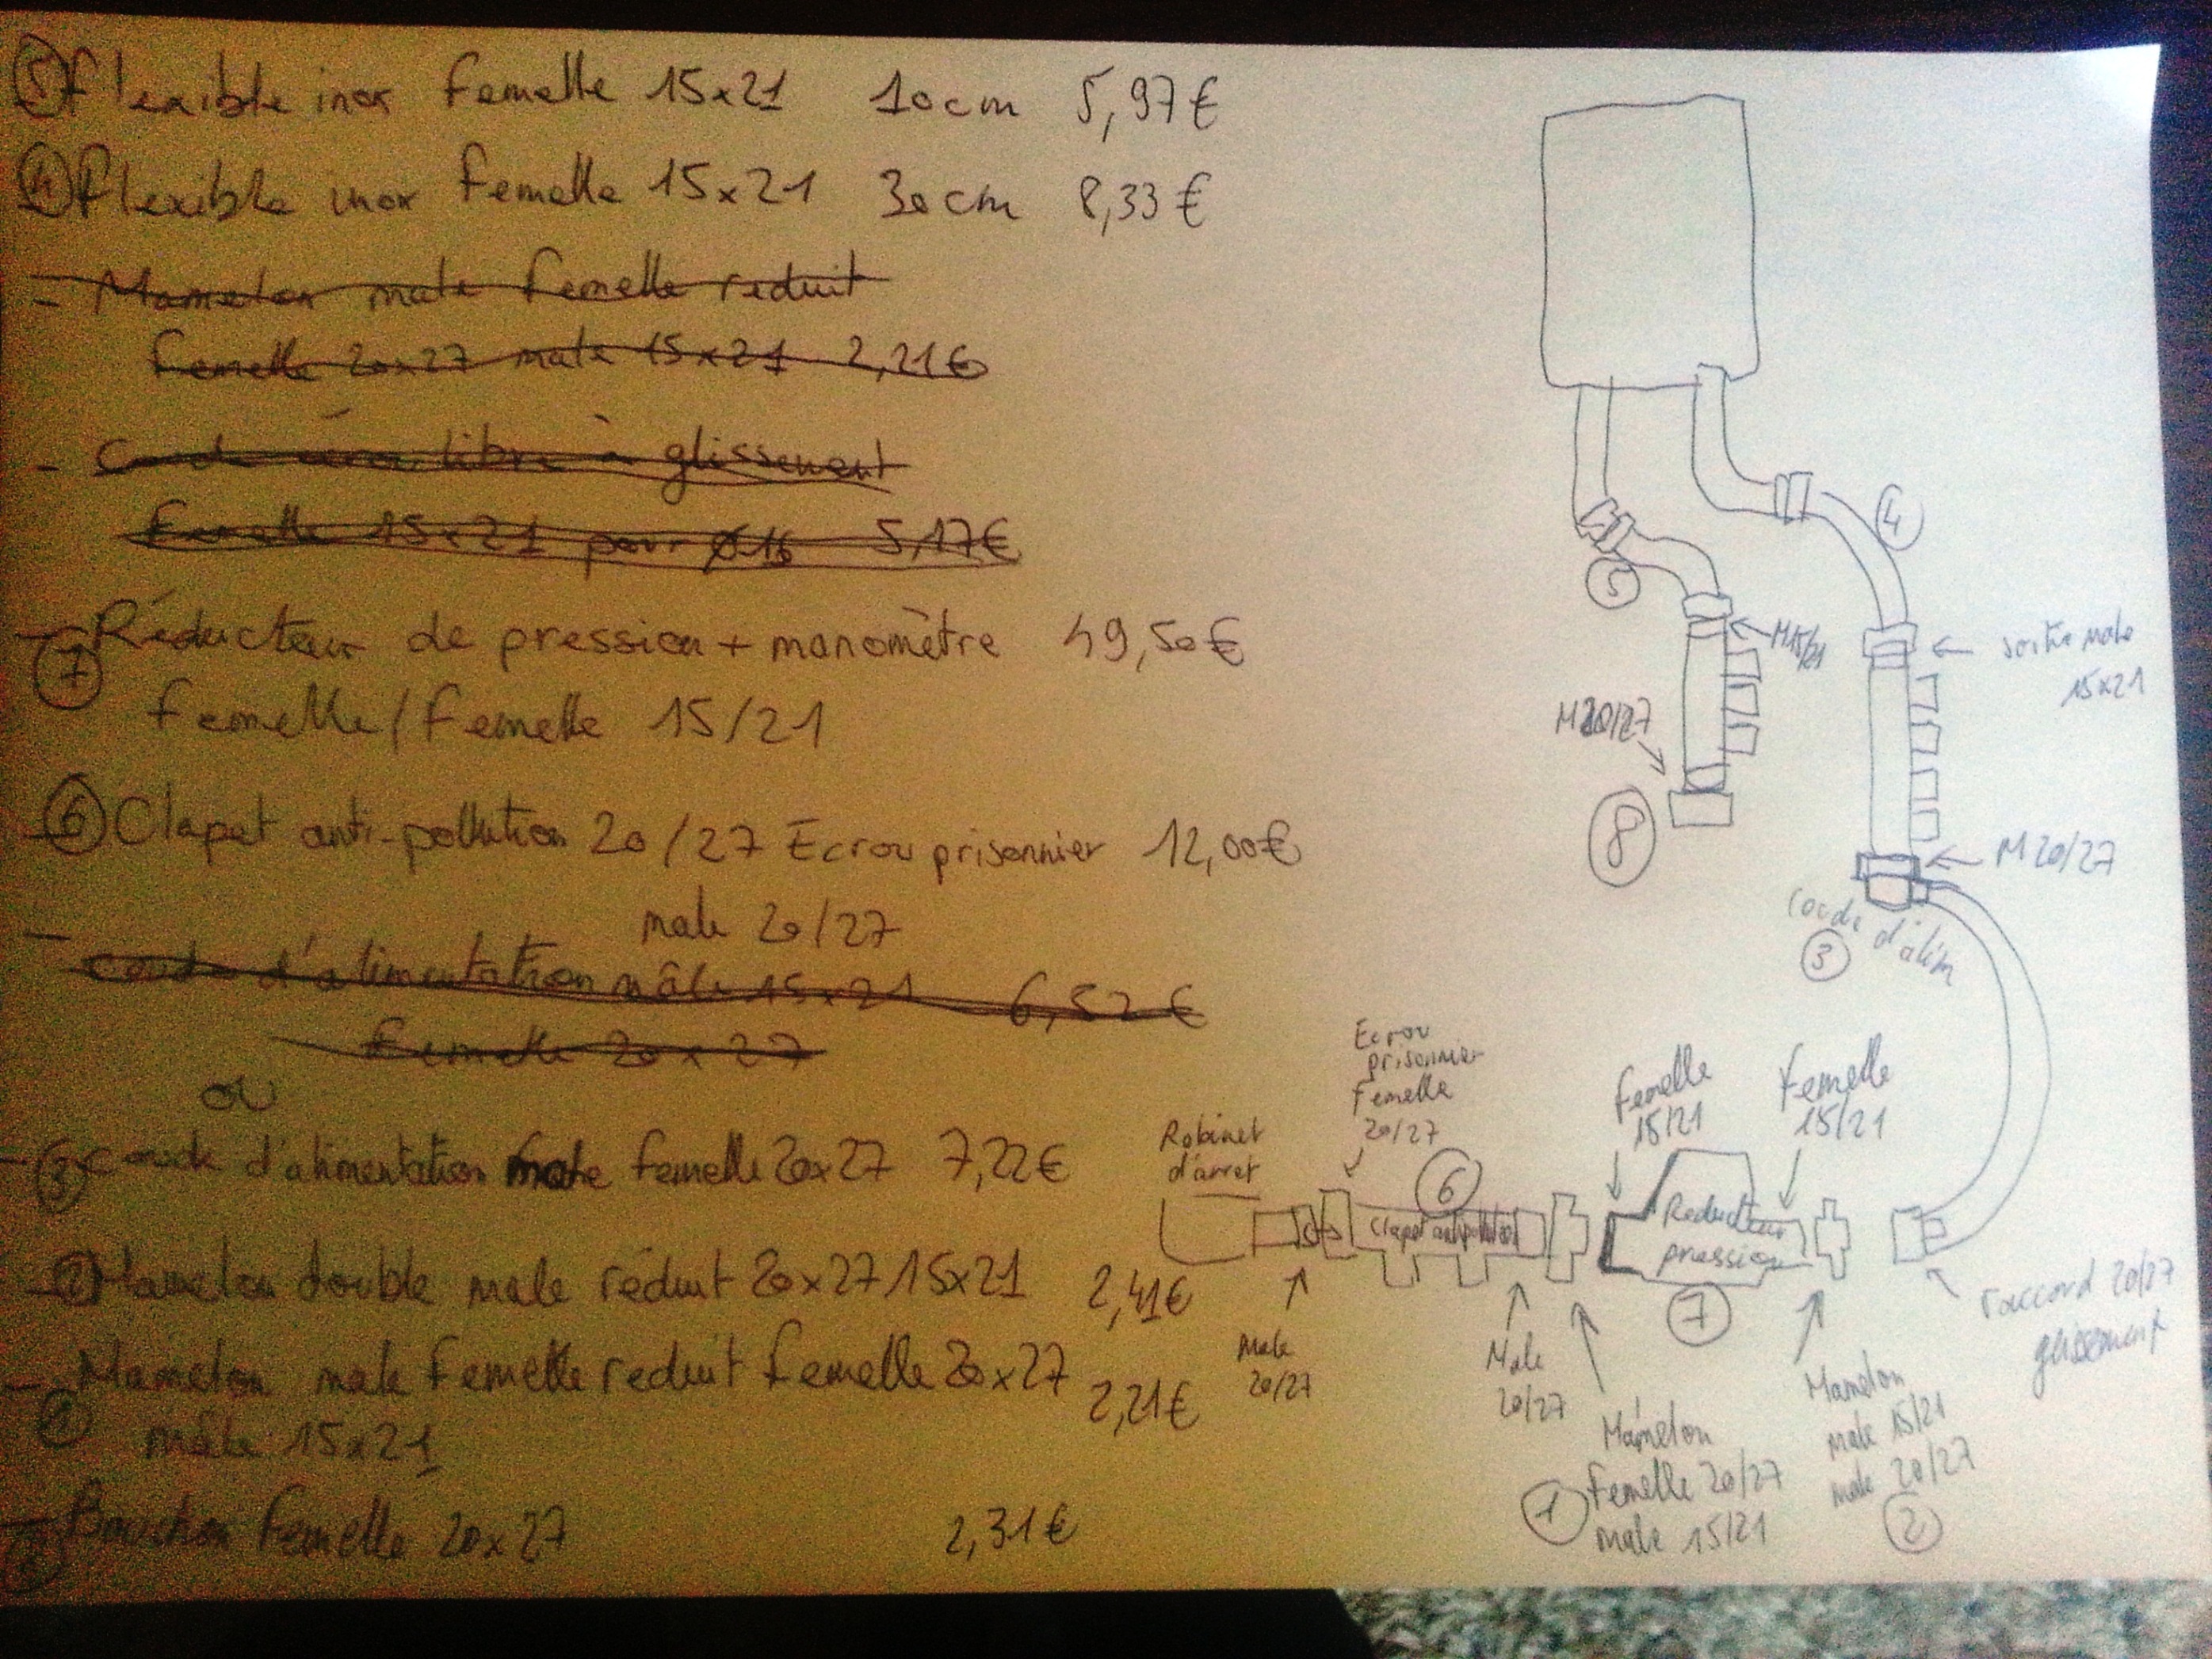 ⑤ Flexible inox femelle 15x21 10cm 5,97€
④ Flexible inox femelle 15x21 30cm 8,33€
- Mamelon male femelle reduit
femelle 20x27 male 15x21 2,21€
- glissement
femelle 15x21 pour ø16 5,17€
- ⑦ Réducteur de pression + manomètre 49,50€
femelle/femelle 15/21
- ⑥ Clapet anti-pollution 20/27 Ecrou prisonnier 12,00€
male 20/27
- d'alimentation mâle 15x21 6,52€
femelle 20x27
ou
- ③ Coude d'alimentation femelle 20x27 7,22€
- ② Mamelon double male réduit 20x27/15x21 2,41€
- Mamelon male femelle reduit femelle 20x27 2,21€
① male 15x21
- ⑧ Bouchon femelle 20x27 2,31€
⑤
④
⑧
M20/27
M15/21
sortie male
15x21
M20/27
Coude d'alim
③
Robinet
d'arret
Male
20/27
Ecrou
prisonnier
femelle
20/27
⑥
Clapet antipollution
Male
20/27
Femelle
15/21
Femelle
15/21
Reducteur
pression
⑦
Mamelon
① femelle 20/27
male 15/21
Mamelon
male 15/21
male 20/27
②
raccord 20/27
glissement